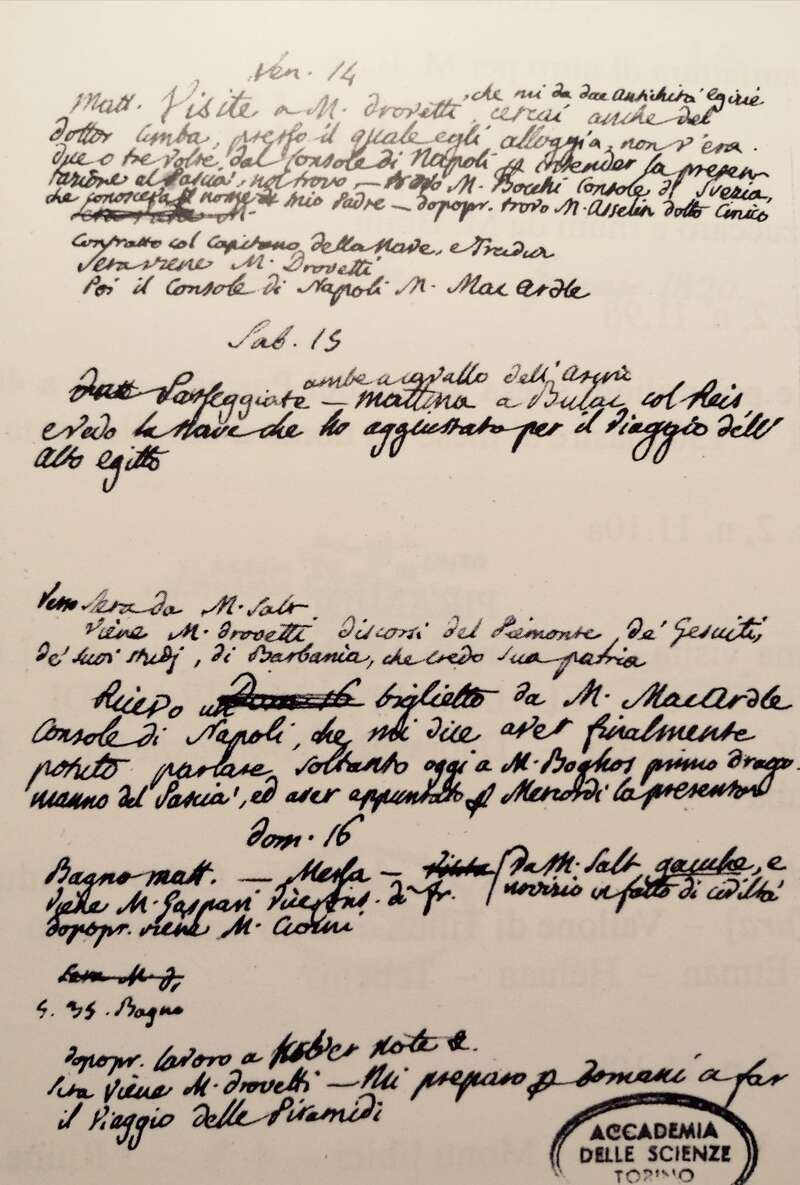 Ven. 14
Matt. Visite a M. Drovetti, che mi da due antichità egizie
cercai anche del
dottor Cimba, presso il quale egli alloggia, non v'era.
due o tre volte dal Console di Napoli p intender la presen-
tazione al Pascià, nol trovo, — trovo M. Bocchi Console di Svezia,
che conosceva p nome di mio Padre — dopopr. trovo M. Asselin dotto Cinico
Contratto col Capitano della Nave, e
Sera viene M. Drovetti
Poi il Console di Napoli M. Mac Ardle
Sab. 15
ambe a cavallo dell'
Passeggiate — mattina a Bulac col Reis,
e vedo la Nave che ho aggiustata per il Viaggio dell'
Alto egitto
Verso sera da M. Salt
Viene M. Drovetti discorsi del Piemonte, de' Gesuiti,
de' suoi studj, di Barbania, che credo sua patria
Ricevo un Dom. 16 biglietto da M. Mac Ardle
Console di Napoli, che mi dice aver finalmente
potuto parlare soltanto oggi a M. Boghos primo drago-
manno del Pascià, ed aver appuntato p Mercordi la presenton
dom. 16
Bagno matt. — Messa — Visita da M. Salt gauche, e
novizio in fatto di civiltà
viene M. Gaspari Vicecons. di fr.
dopopr. viene M.
Sera M. J,
S. 35. Bagno
dopopr. lavoro a note &.
sera viene M. Drovetti — Mi preparo p domani a far
il Viaggio delle Piramidi
ACCADEMIA
DELLE SCIENZE
TORINO